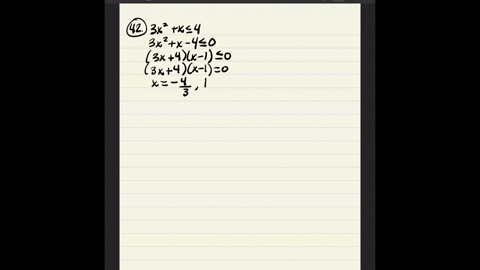 42 3x² + x ≤ 4
3x² + x - 4 ≤ 0
(3x + 4)(x - 1) ≤ 0
(3x + 4)(x - 1) = 0
x = -4/3, 1